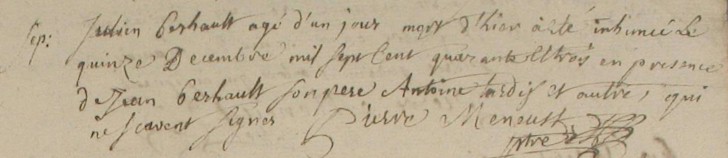 Sep: Julien Bershault agé d'un jour mort d'hier a été inhumé le
quinze Decembre mil sept Cent quarante Et trois en presence
de Jean Bershault son pere Antoine tardif et autre, qui
ne scavent signer Pierre Menoust
ptre